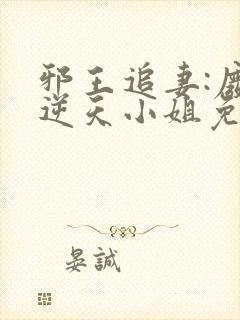 邪王追妻:废
逆天小姐免
晏誠